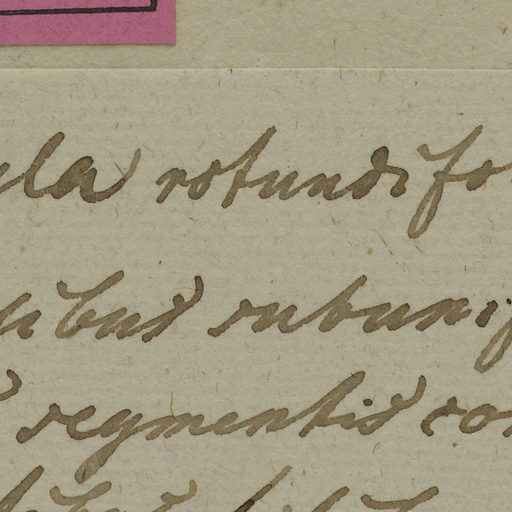 ula rotundifo
libus subunif
segmentis co